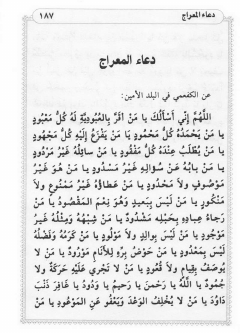 دعاء المعراج
١٨٧
دعاء المعراج
عن الكفعمي في البلد الأمين:
اللَّهُمَّ إِنِّي أَسْأَلُكَ يَا مَنْ أَقَرَّ بِالعُبُودِيَّةِ لَهُ كُلُّ مَعْبُودٍ
يَا مَنْ يَحْمَدُهُ كُلُّ مَحْمُودٍ يَا مَنْ يَفْزَعُ إِلَيْهِ كُلُّ مَجْهُودٍ
يَا مَنْ يُطْلَبُ عِنْدَهُ كُلُّ مَفْقُودٍ يَا مَنْ سَائِلُهُ غَيْرُ مَرْدُودٍ
يَا مَنْ بَابُهُ عَنْ سُؤَالِهِ غَيْرُ مَسْدُودٍ يَا مَنْ هُوَ غَيْرُ
مَوْصُوفٍ وَلاَ مَحْدُودٍ يَا مَنْ عَطَاؤُهُ غَيْرُ مَمْنُوعٍ وَلاَ
مَنْكُودٍ يَا مَنْ لَيْسَ بِبَعِيدٍ وَهُوَ نِعْمَ المَقْصُودُ يَا مَنْ
رَجَاءُ عِبَادِهِ بِحَبْلِهِ مَشْدُودٌ يَا مَنْ شِبْهُهُ وَمِثْلُهُ غَيْرُ
مَوْجُودٍ يَا مَنْ لَيْسَ بِوَالِدٍ وَلاَ مَوْلُودٍ يَا مَنْ كَرَمُهُ وَفَضْلُهُ
لَيْسَ بِمَعْدُودٍ يَا مَنْ حَوْضُ بِرِّهِ لِلأَنَامِ مَوْرُودٌ يَا مَنْ لاَ
يُوصَفُ بِقِيَامٍ وَلاَ قُعُودٍ يَا مَنْ لاَ تَجْرِي عَلَيْهِ حَرَكَةٌ وَلاَ
جُمُودٌ يَا اللَّهُ يَا رَحْمَنُ يَا رَحِيمُ يَا وَدُودُ يَا غَافِرَ ذَنْبِ
دَاوُدَ يَا مَنْ لاَ يُخْلِفُ الوَعْدَ وَيَعْفُو عَنِ المَوْعُودِ يَا مَنْ